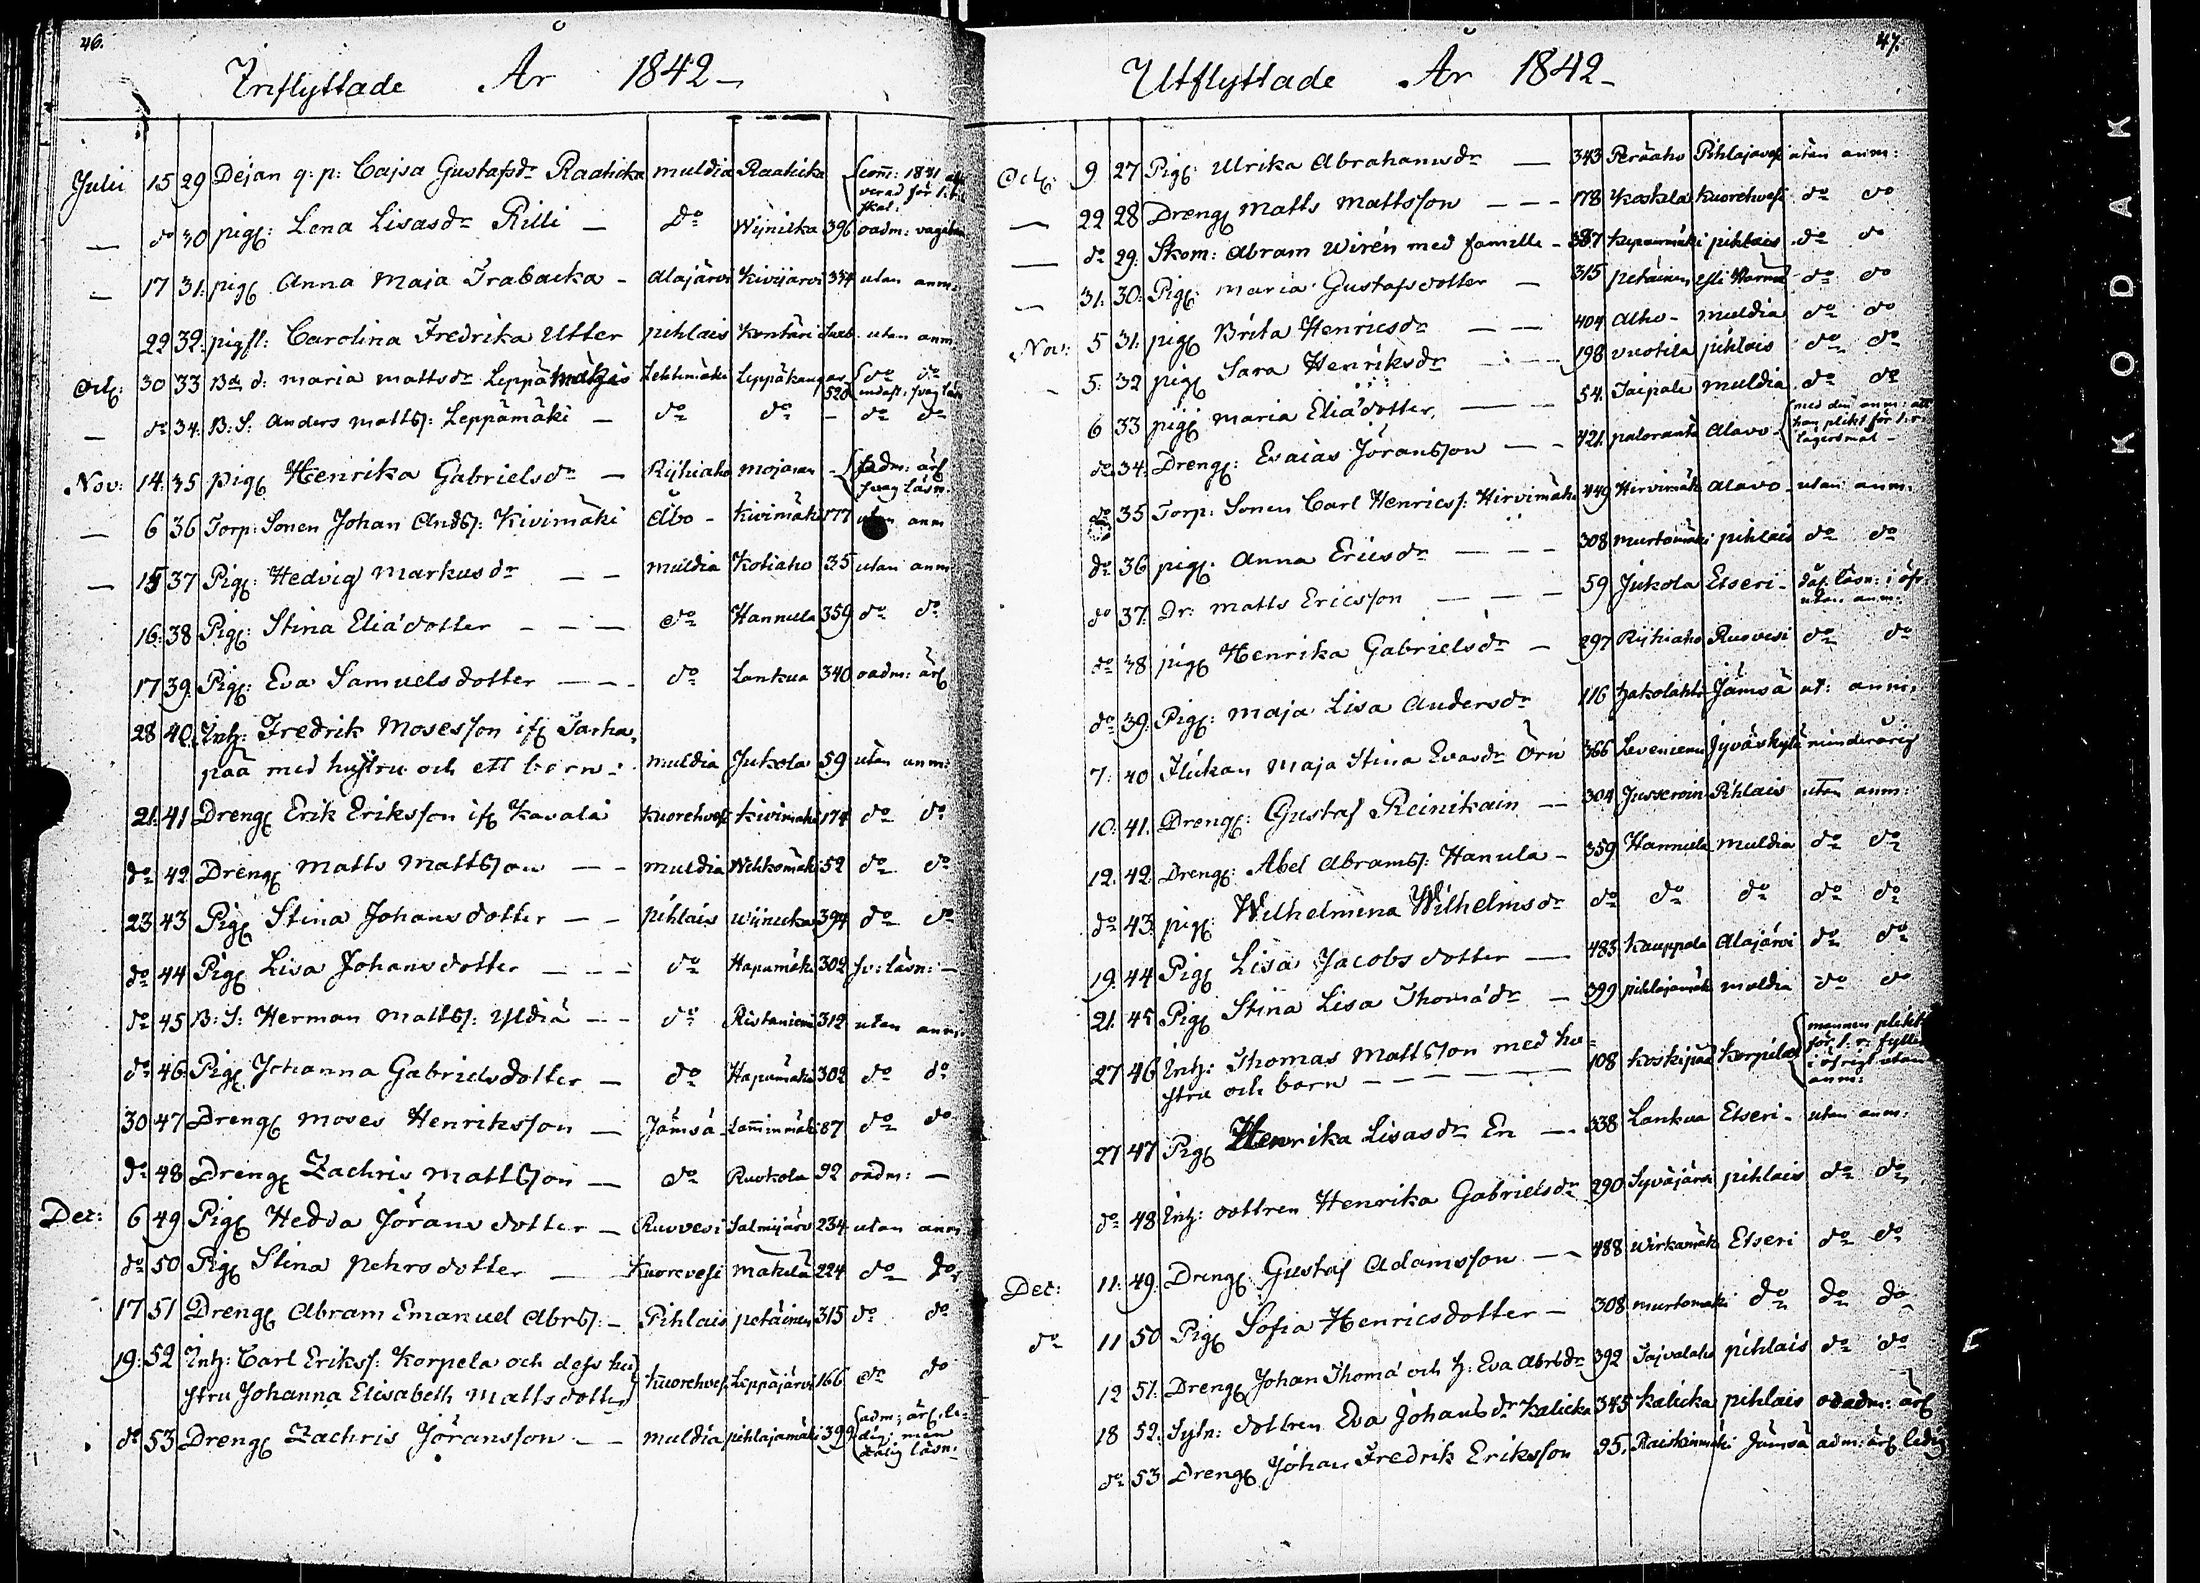 46.
Inflyttade År 1842
Julii 15 29 Dejan q: p: Cajsa Gustafsdr Raaticka muldia Raaticka
— do 30 pig: Lena Lisasdr Rilli — do Wijnicka 396 oadm:
— 17 31. pig Anna Maja Trabacka - Alajärvi Kivijärvi 334 utan anm:
22 32. pig Carolina Fredrika Utter pihlais Kontäri utan anm
Oct: 30 33 Bd d: maria mattsdr Lehtimäki Leppäkangas 520 do do
— do 34. B: S: Anders matts: Leppämäki — do do - do do
Nov: 14. 35 pig Henrika Gabrielsdr — Rijhiaho mojanen svag läsn:
— 6 36 Torp: Sonen Johan Ands: Kivimäki Åbo - Kivimäki 177 utan anm
— 15 37 Pig: Hedvig Markusdr — — muldia Kotiaho 35 utan anm
16: 38 Pig: Stina Eliädotter - — — do Hannula 359 do do
17 39. Pig: Eva Samuelsdotter — — - do Lankua 340 oadm: ärl
28 40. Inh: Fredrik Mosesson ifr Tarha,
pää med hustru och ett barn - muldia Jukola 59 utan anm:
21. 41 Dreng Erik Eriksson ifr Kavala Kuorehvesi Kivimäki 174 do do
do 42. Dreng Matts Mattsson — - muldia Wehkomäki 52 do do
23 43 Pig Stina Johansdotter — — pihlais Wijnicka 394 do do
do 44 Pig Lisa Johansdotter — — — do Hapamäki 302 sv: läsn: —
do 45 B: S: Herman Matts: Yldiä — - do Ristaniemi 312 utan anm:
do 46. Pig Johanna Gabrielsdotter — do Hapamäki 302 do do
30 47 Dreng Moses Henriksson — Jämsä Lamminmäki 87 do do
do 48 Dreng Zachris Mattsson — do Ruokola 92 oadm: —
Dec: 6 49 Pig Hedda Jöransdotter — Ruovesi Salmijärvi 234 utan anm
do 50 Pig Stina Pehrsdotter — Kuorevesi Mäkelä 224 do do
17 51 Dreng Abram Emanuel Abrs: - Pihlais petäinen 315 do do
19. 52 Inh: Carl Eriks: Korpela och dess hu
stru Johanna Elisabeth Mattsdotter Kuorehvesi Leppäjärvi 166 do do
do 53 Dreng Zachris Jöransson — — muldia pihlajamäki 399 adm; ärl. le-
dig; men
dålig läsn:
47.
Utflyttade År 1842
Oct: 9 27 Pig: Ulrika Abrahamsdr — 343 Peräaho Pihlajavesi utan anm:
— 22 28 Dreng Matts Mattsson — — - 178 Koskela Kuorehvesi do do
— do 29. Skom: Abram Wirén med famille - 387 pihlais do do
— 31. 30. Pig: Maria Gustafsdotter — 315 petäinen do do
Nov: 5 31. pig Brita Henricsdr — — 404 Alho - muldia do do
- 5. 32 pig Sara Henriksdr - — 198 vuotila pihlais do do
6 33 pig Maria Eliädotter, — — 54. Taipale muldia do do
do 34. Dreng: Esaias Jöransson — — 421. paloranta Alavo - med den anm: att
han plikt för l: r:
lägersmål -
do 35 Torp: Sonen Carl Henrics: Hirvimäki 449 Hirvimäki Alavo - utan anm:
do 36 pig: Anna Ericsdr — — - 308 murtomäki pihlais do do
do 37. Dr: Matts Ericsson — — — 59 Jukola Etseri - dål. läsn: i öfr
utan anm:
do 38 pig Henrika Gabrielsdr — 297 Rijhiaho Ruovesi do do
do 39. Pig: Maja Lisa Andersdr 116 Jämsä ut: anm:
7. 40 Flickan Maja Stina Evasdr Örn 366 Jyväskylä minderårig
10. 41. Dreng: Gustaf Reinikain — 304 Pihlais utan anm:
12. 42. Dreng: Abel Abrams: Hanula - 359 Hannula muldia do do
do 43. pig: Wilhelmina Wilhelmsdr do do do do do
19. 44 Pig Lisa Jacobsdotter — 483 Kauppala Alajärvi do do
21. 45 Pig Stina Lisa Thomädr — 399 pihlajamäki muldia do do
27 46 Inh: Thomas Mattsson med hu-
stru och barn — — — — 108 Koskipää Korpilax mannen plikt
för l: r: fylleri
i öfrigt utan
anm:
27 47 Pig Henrika Lisasdr En — 338 Lankua Etseri - utan anm:
do 48 Inh: dottren Henrika Gabrielsdr 290 Syväjärvi pihlais do do
Dec: 11. 49. Dreng: Gustaf Adamsson — - 488 Wirkamäki Etseri do do
do 11 50 Pig Sofia Henricsdotter — 308 murtomäki do do do
12 51. Dreng Johan Thomä och h: Eva Abrsdr 392 pihlais do do
18 52. Sytn: dottren Eva Johansdr Kalicka 345 Kalicka pihlais oadm: ärl
do 53 Dreng Johan Fredrik Eriksson 95. Raiskinmäki Jämsä adm: ärl. ledig
KODAK